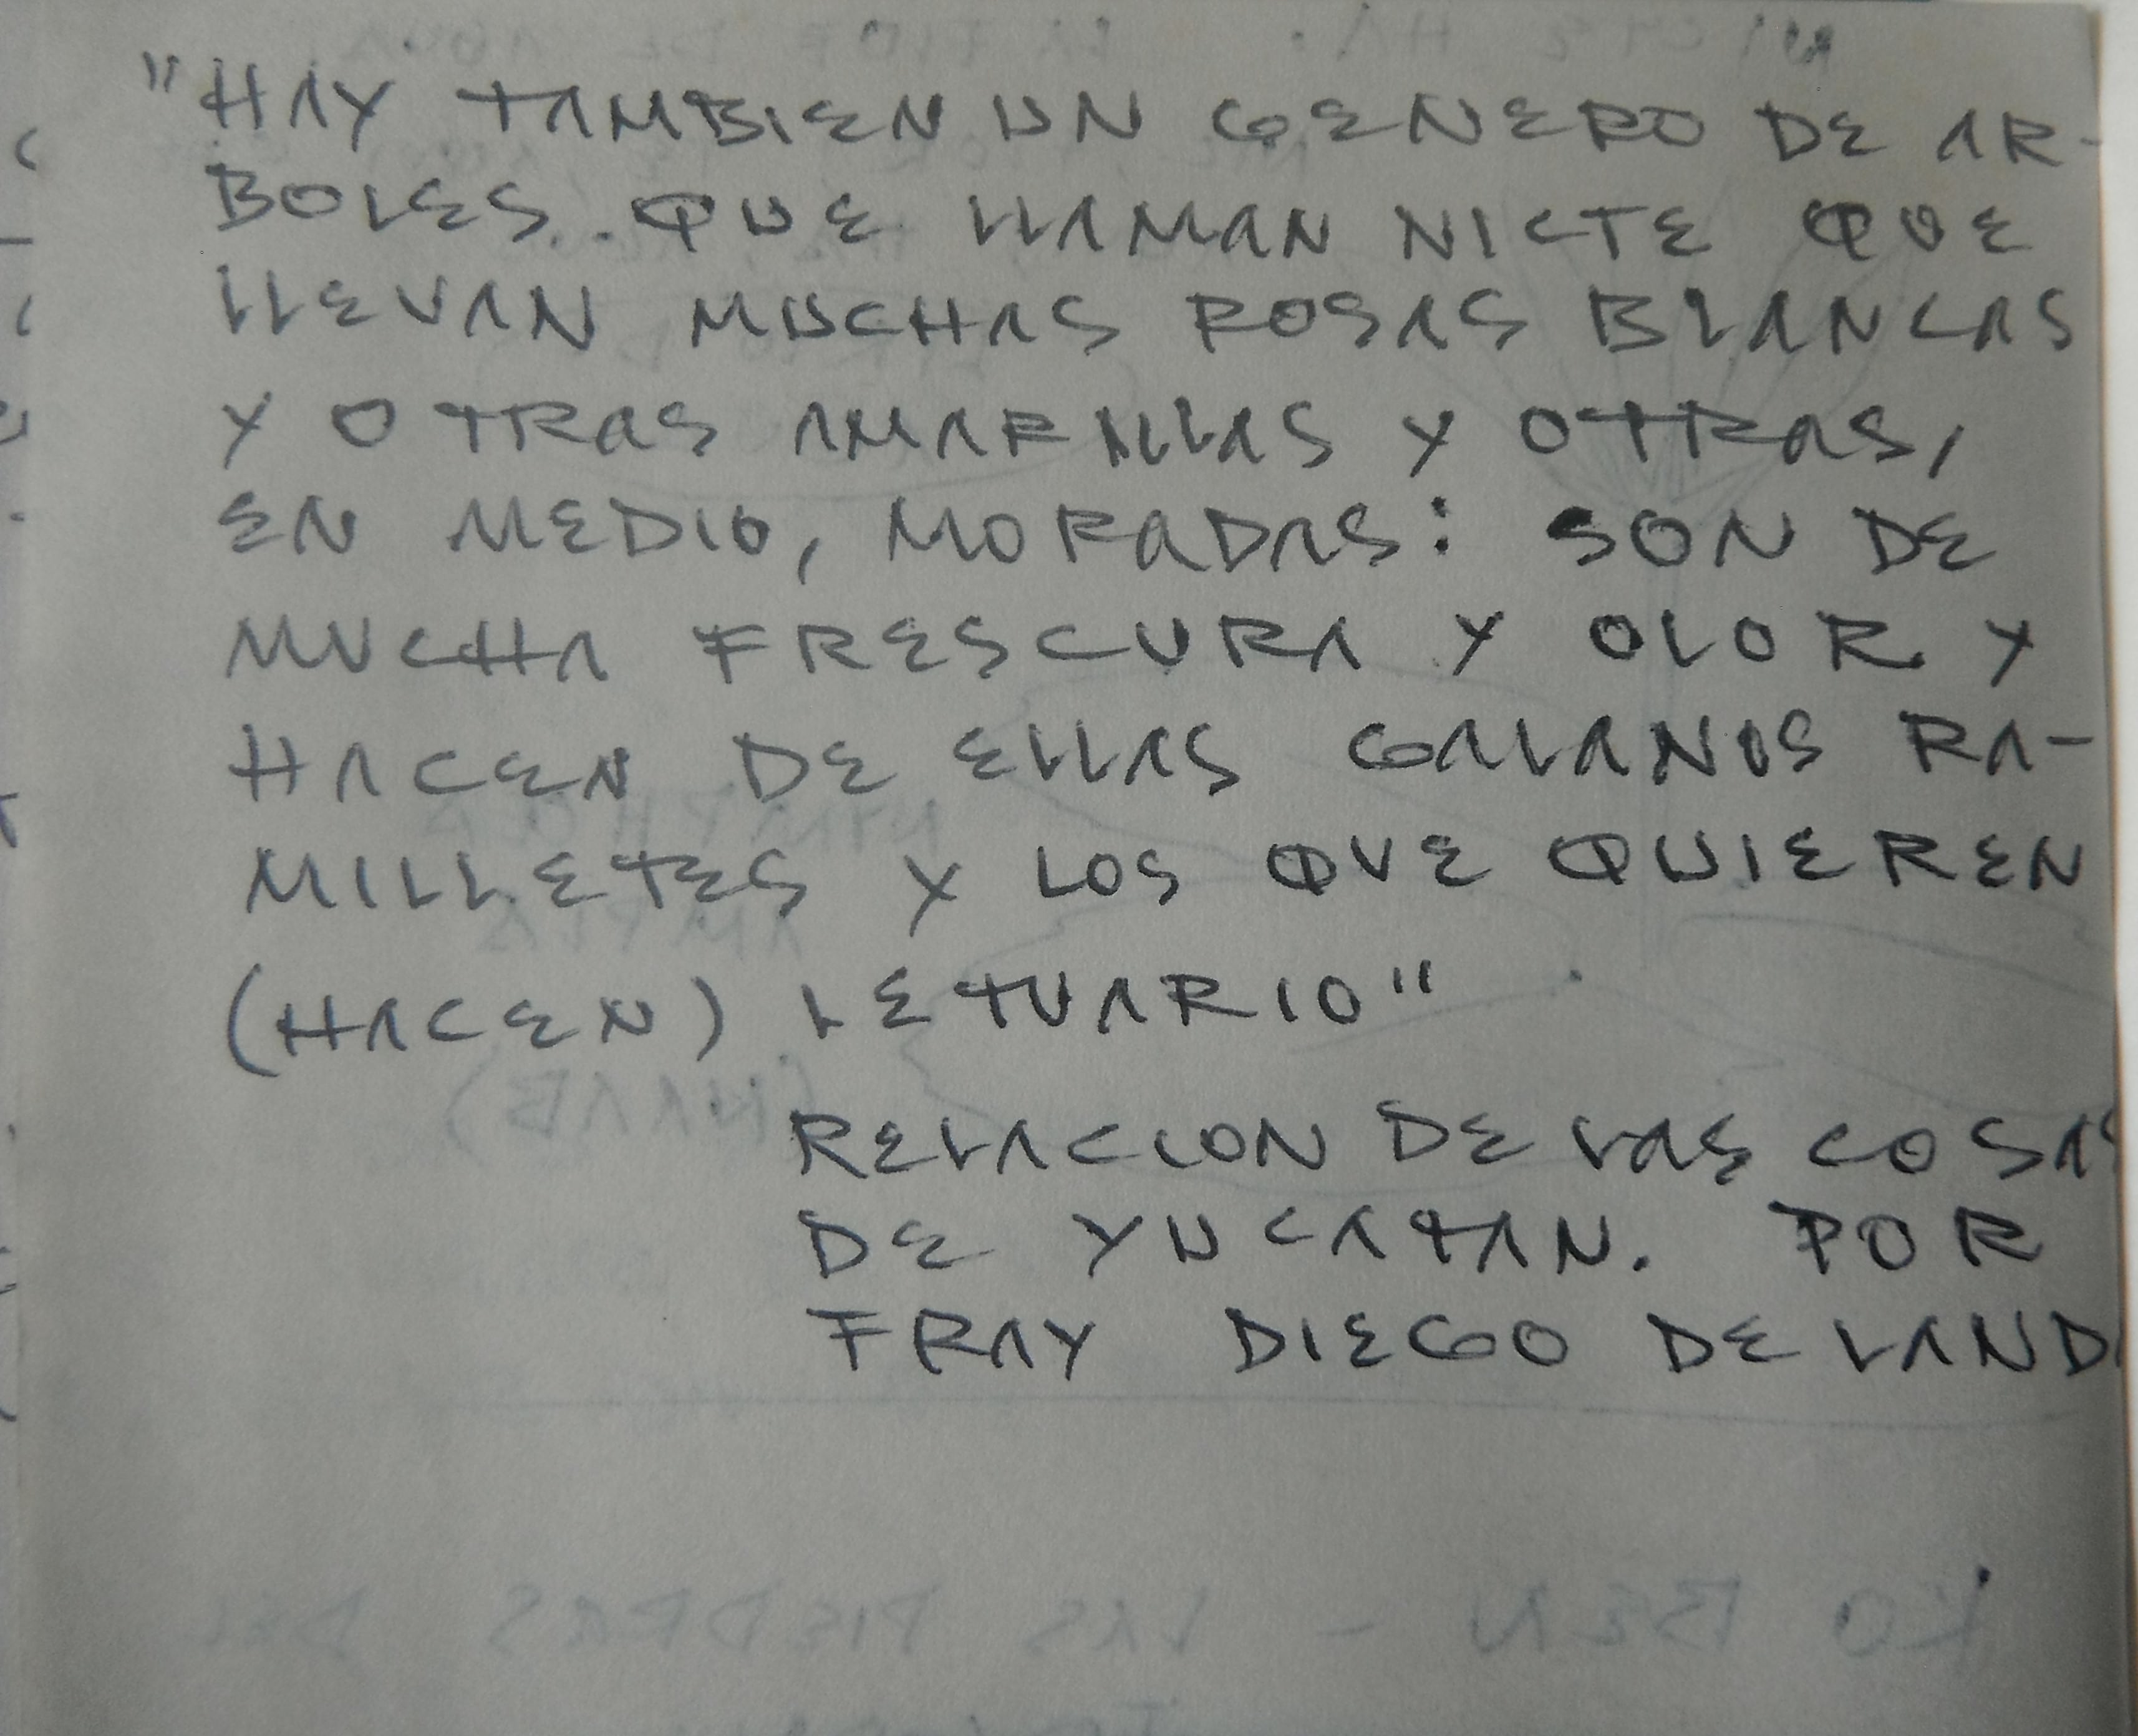 "HAY TAMBIEN UN GENERO DE AR-
BOLES QUE LLAMAN NICTE QUE
LLEVAN MUCHAS ROSAS BLANCAS
Y OTRAS AMARILLAS Y OTRAS,
EN MEDIO, MORADAS: SON DE
MUCHA FRESCURA Y OLOR Y
HACEN DE ELLAS GALANOS RA-
MILLETES Y LOS QUE QUIEREN
(HACEN) LETUARIO"
RELACION DE LAS COSAS
DE YUCATAN. POR
FRAY DIEGO DE LAND